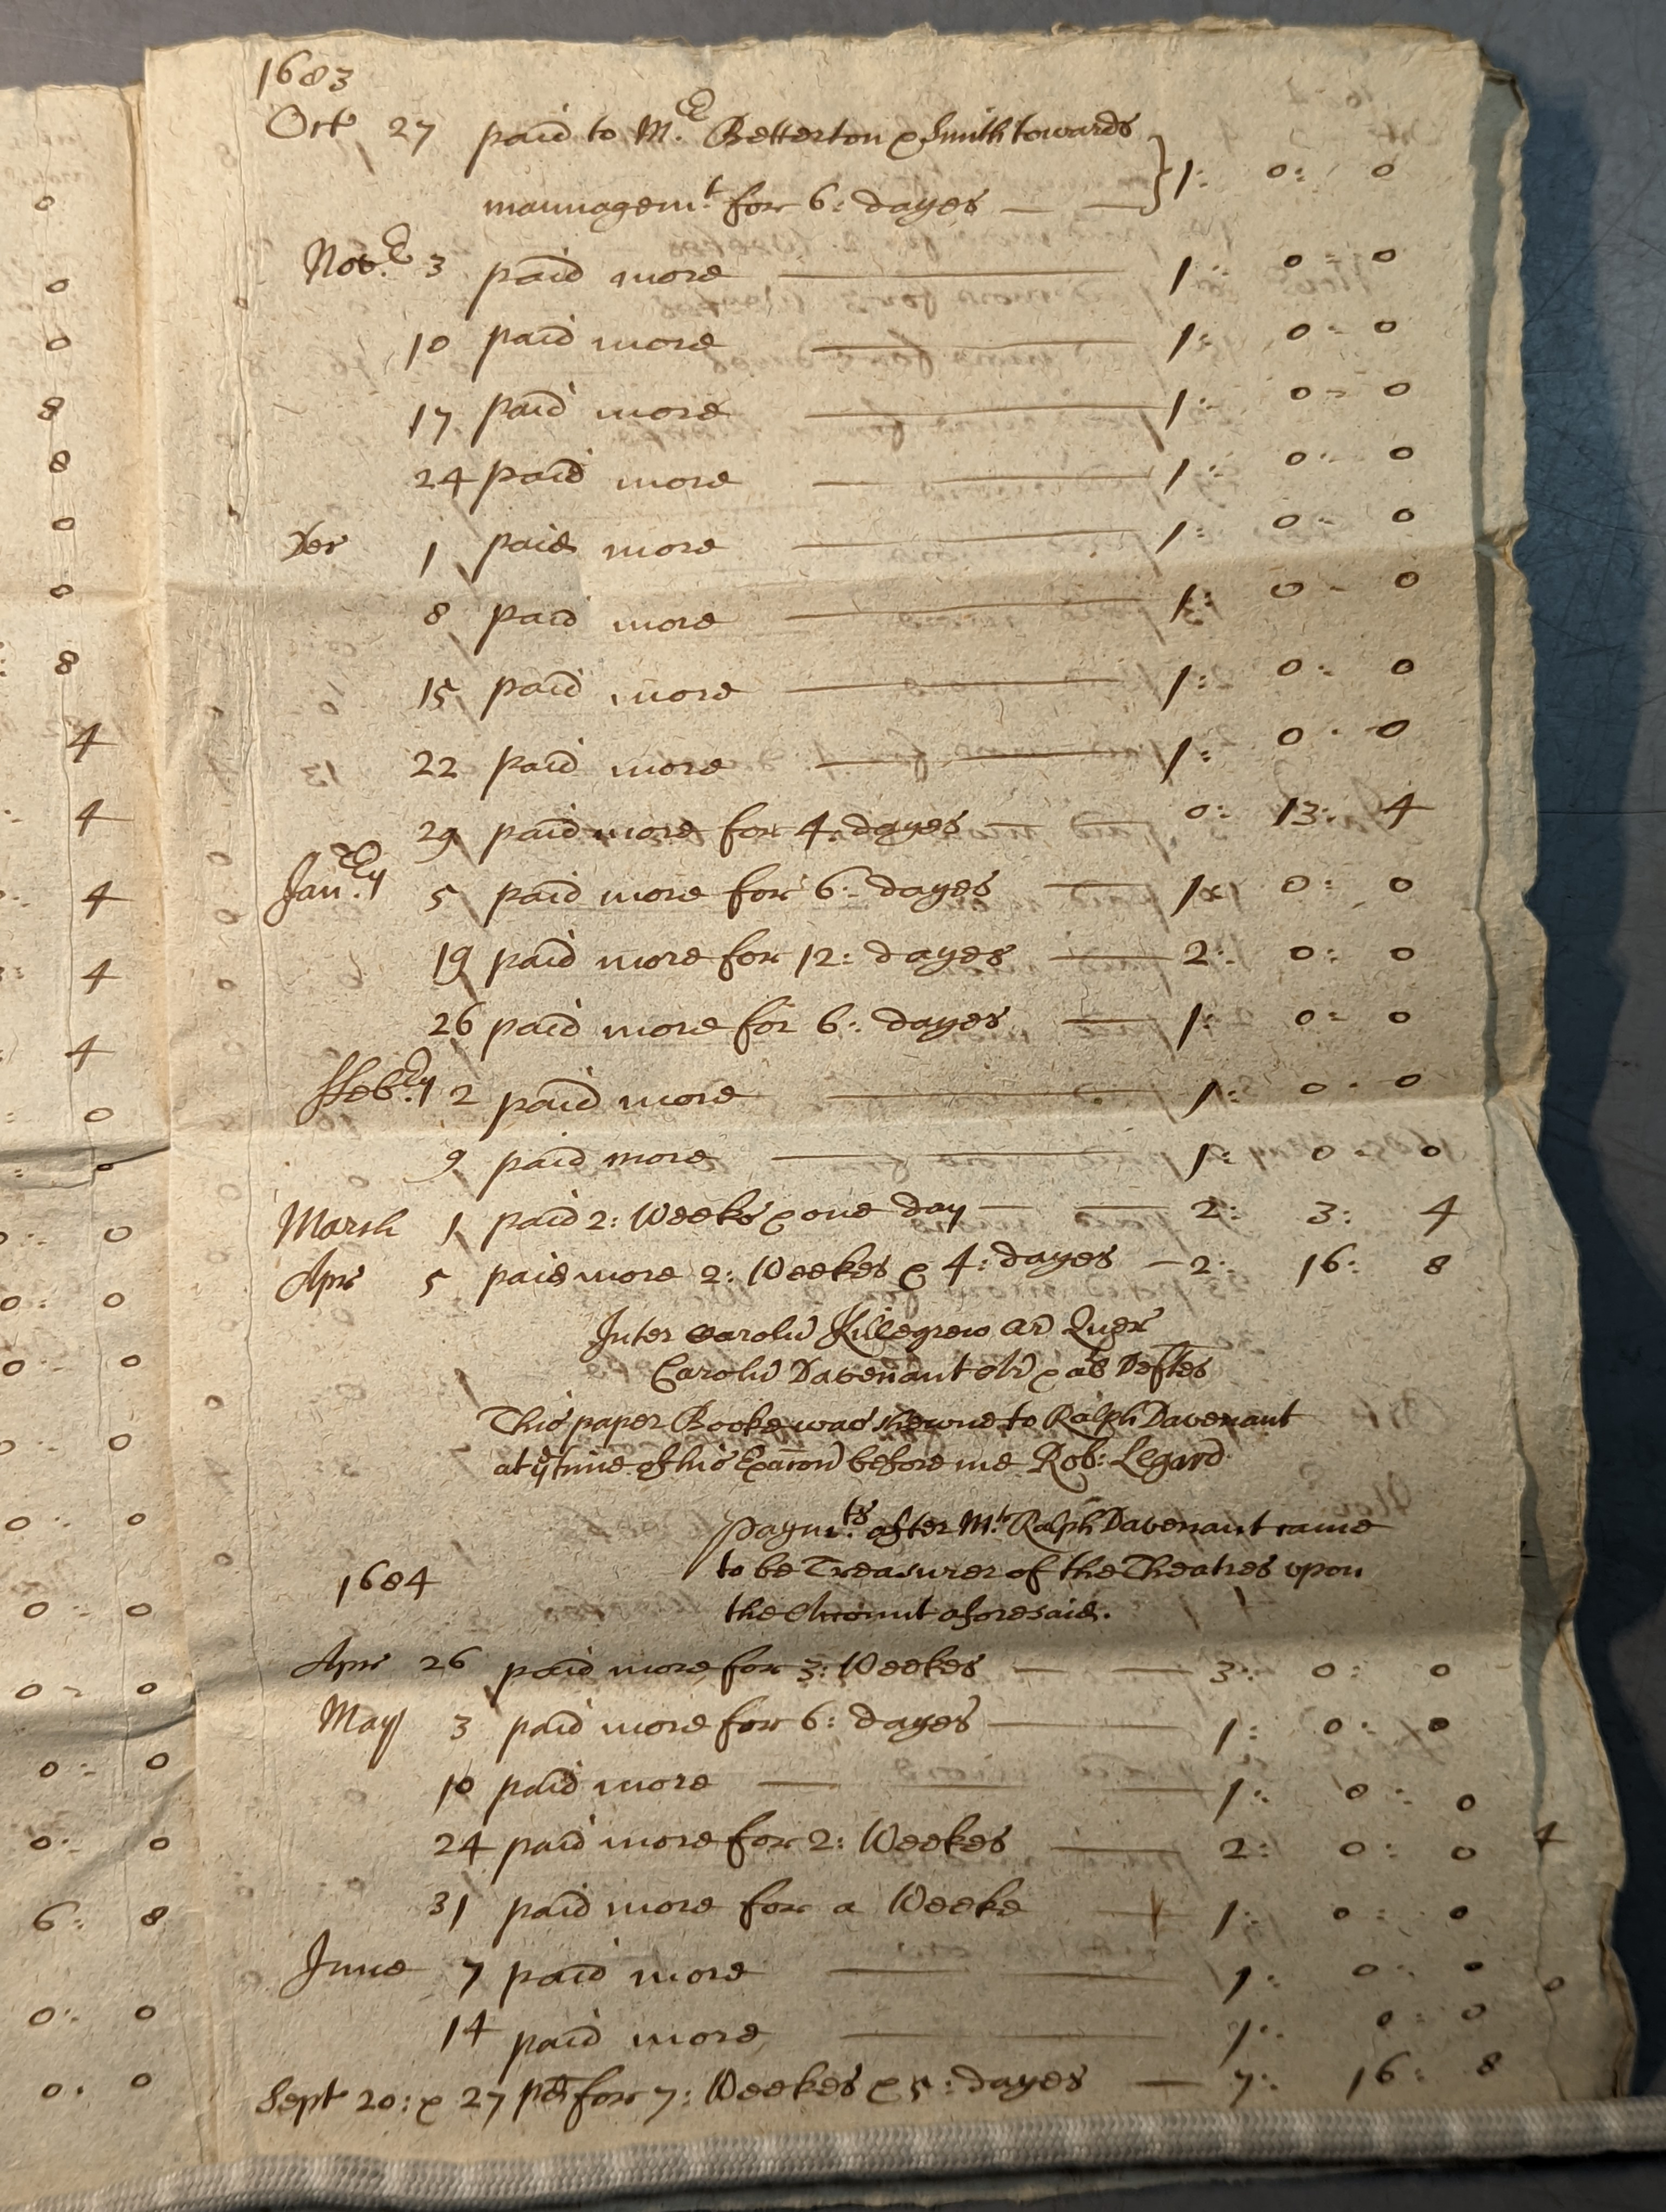 1683
Octr 27 paid to Mr. Betterton & Smith towards
mannagemt. for 6: dayes — — 1: 0: 0
Nov.r 3 paid more — 1: 0: 0
10 paid more — 1: 0: 0
17 paid more — 1: 0: 0
24 paid more — 1: 0: 0
Xer 1 paid more — 1: 0: 0
8 paid more — 1: 0: 0
15 paid more — 1: 0: 0
22 paid more — 1: 0: 0
29 paid more for 4: dayes — 0: 13: 4
Jan.ry 5 paid more for 6: dayes — 1: 0: 0
19 paid more for 12: dayes — 2: 0: 0
26 paid more for 6: dayes — 1: 0: 0
ffeb.ry 2 paid more — 1: 0: 0
9 paid more — 1: 0: 0
March 1 paid 2: Weeks & one day — — 2: 3: 4
Apr 5 paid more 2: Weekes & 4: dayes — 2: 16: 8
Inter Carolu Killegrew Ar Quer
Carolu Davenant & al Deftes
This paper Booke was shewne to Ralph Davenant
at ye time of his Exaicon before me Rob: Legard
Paymts. after Mr. Ralph Davenant came
to be Treasurer of the Theatres upon
1684
the Account aforesaid.
Apr 26 paid more for 3: Weekes — — 3: 0: 0
May 3 paid more for 6: dayes — 1: 0: 0
10 paid more — 1: 0: 0
24 paid more for 2: Weekes — 2: 0: 0
31 paid more for a Weeke — 1: 0: 0
June 7 paid more — 1: 0: 0
14 paid more — 1: 0: 0
Sept 20: & 27 pd for 7: Weekes & 5: dayes — 7: 16: 8